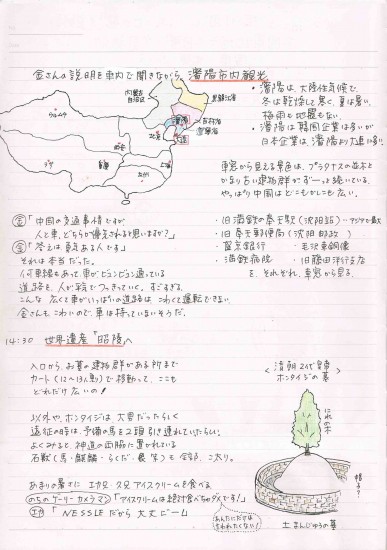 金さんの説明を車内で聞きながら、瀋陽市内観光
・瀋陽は、大陸性気候で、
冬は乾燥して寒く、夏は暑い。
梅雨も地震もない。
・瀋陽は韓国企業は多いが
日本企業は、瀋陽より大連が多い
内蒙古
自治区
黒龍江省
吉林省
遼寧省
瀋陽
大連
北京
ウルムチ
西安
上海
車窓から見える景色は、プラタナスの並木と
かなり古い建物群がずーっと続いている。
やっぱり中国はどこもかしこも広い。
金「中国の交通事情ですが
人と車、どちらが優先されると思いますか?」
金「答えは、勇気ある人です」
それは本当だった。
何車線もあって、車がビュンビュン通っている
道路を、人が平気でつっきっていく。すごすぎる。
こんな広くて車がいっぱいの道路は こわくて運転できない。
金さんもこわいので、車は持っていないそうだ。
・旧満鉄の奉天駅(沈阳站)
・旧奉天郵便局(沈阳邮政)
・毛沢東銅像
・満鉄病院
・旧藤田洋行支店
を、それぞれ、車窓から見る。
14:30 世界遺産「昭陵」へ
入口から、お墓の建物群がある所まで
カート(12~13人乗)で移動って、ここも
どれだけ広いの!
以外や、ホンタイジは 大男だったらしく
遠征の時は、予備の馬を2頭引き連れていたらしい。
よくみると、神道の両脇に置かれている
石獣(馬・麒麟・らくだ・
)も全部、こぶり。
<清朝2代皇帝
ホンタイジの墓>
にれの木
帽子?
土まんじゅうの墓
あまりの暑さに 功兄、久兄アイスクリームを食べる
のちのゲーリーカメラマン「アイスクリームは絶対食べちゃダメです!」
功「NESSLEだから大丈ビーム」
あんただけには
言われたくない!